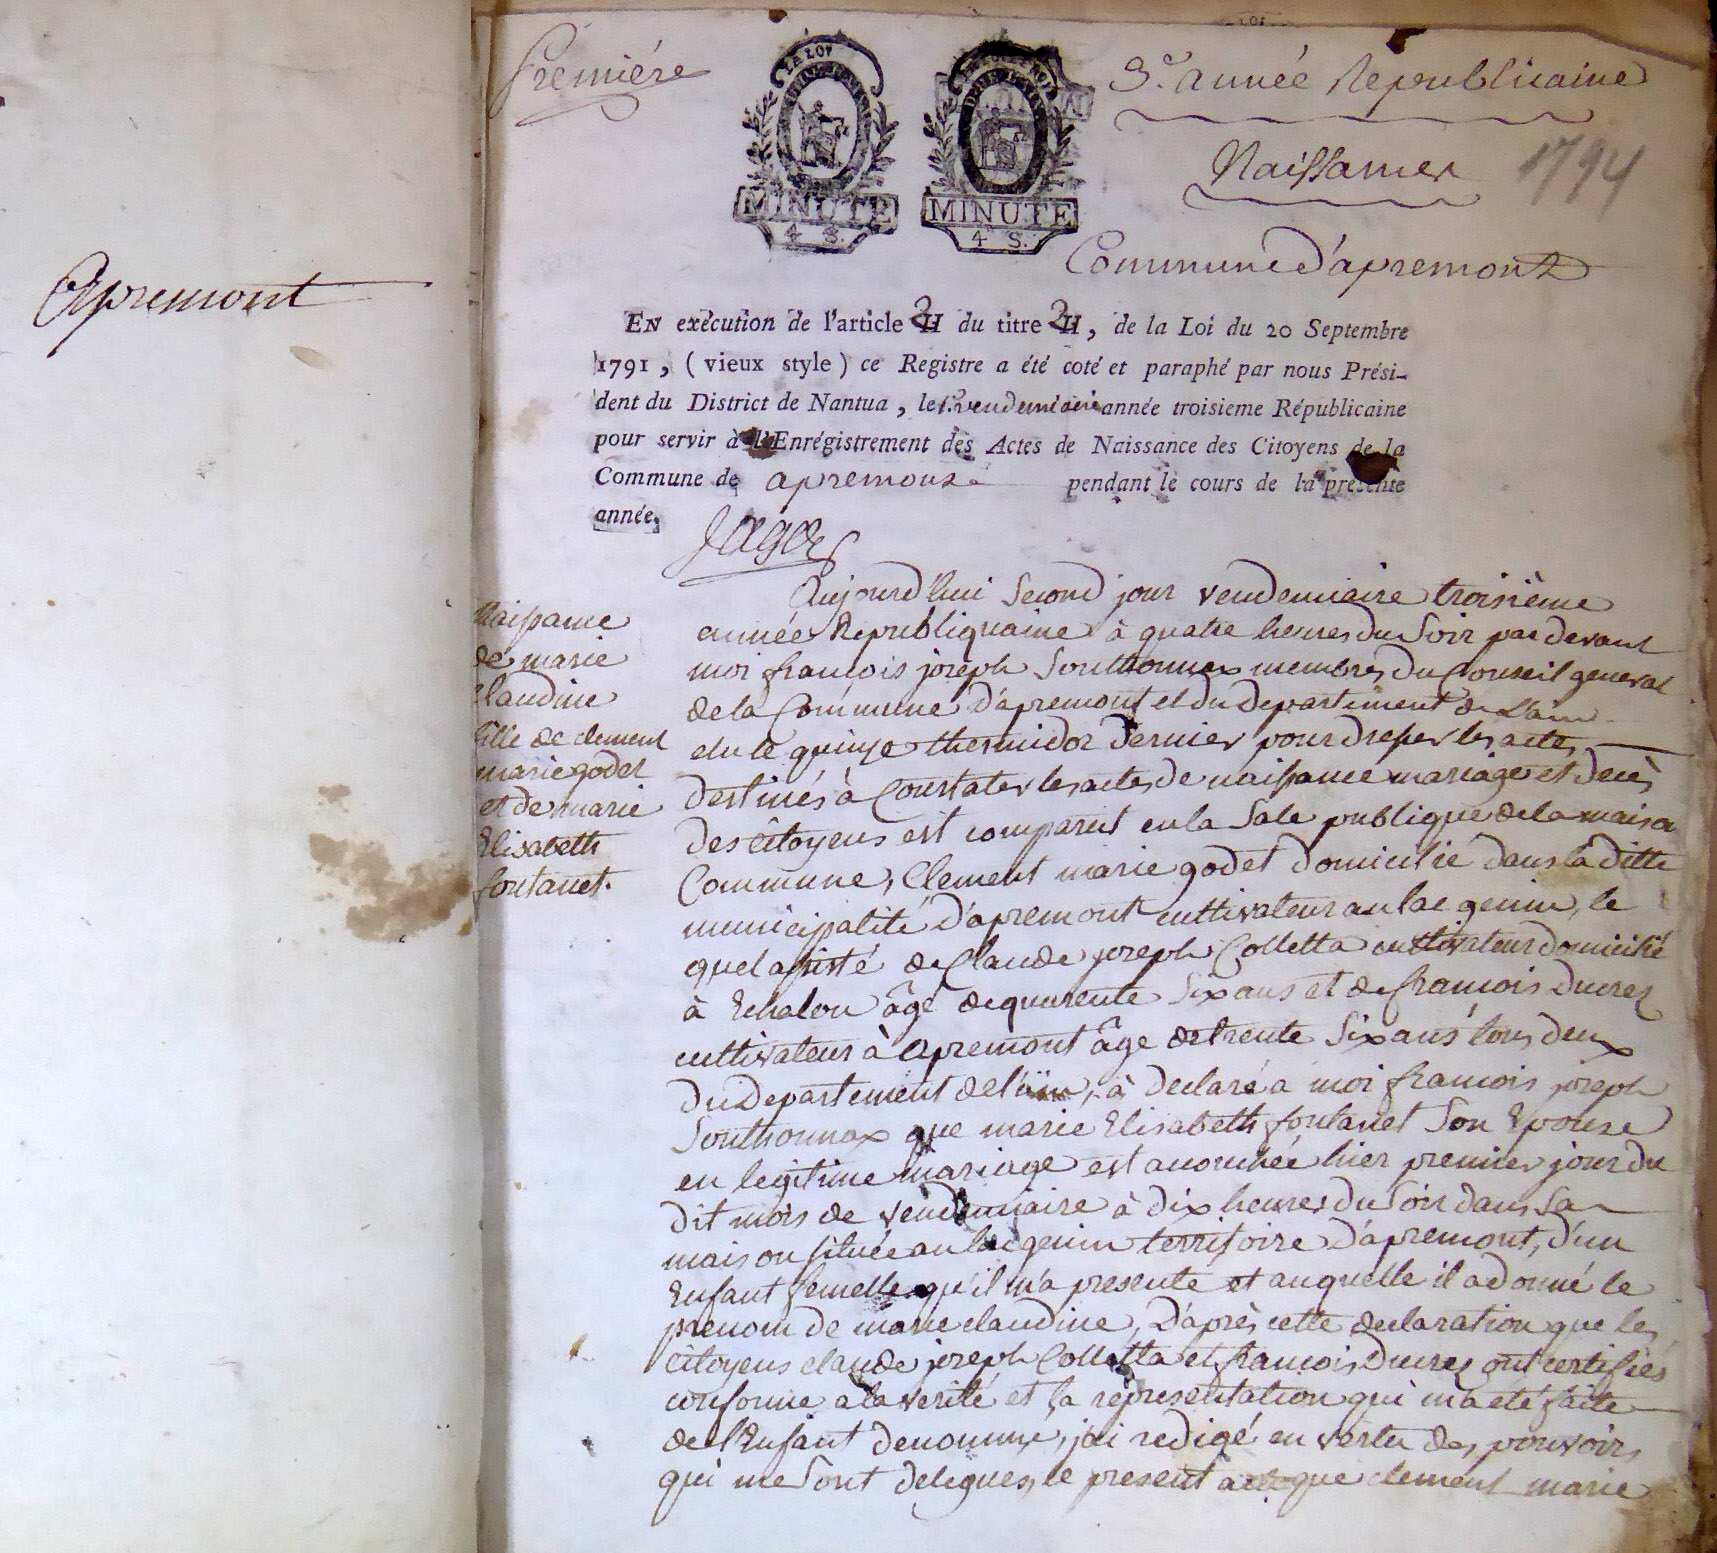 Apremont
Première
LA LOI
MINUTE
4 S.
MINUTE
4 S.
3.e année Republicaine
Naissances 1794
Commune d'apremont
EN exécution de l'article 2 du titre 2, de la Loi du 20 Septembre
1791, (vieux style) ce Registre a été coté et paraphé par nous Prési-
dent du District de Nantua, le 1.er vendemiaire année troisieme Républicaine
pour servir à l'Enrégistrement des Actes de Naissance des Citoyens de la
Commune de apremont pendant le cours de la présente
année.
Naissance
de marie
claudine
fille de clement
marie godet
et de marie
Elisabeth
fontanet.
Aujourd'hui second jour vendemiaire troisième
année Republiquaine à quatre heures du soir par devant
moi françois joseph Southonnax membres du Conseil general
de la Commune d'apremont et du departement de L'ain
elu le quinze thermidor dernier pour dresser les actes
destinés à Constater les actes de naissance mariage et decès
des Citoyens est comparut en la Sale publique de la maison
Commune, Clement marie godet domicilié dans la ditte
municipalité d'apremont cultivateur au lac genin, le
quel assisté de Claude joseph Colletta cultivateur domicilié
à Echalon âgé de quarente six ans et de francois Ducrez
cultivateur à apremont âge de trente six ans tous deux
du departement de l'ain, à declaré a moi francois joseph
Southonnax que marie Elisabeth fontanet son Epouse
en legitime mariage est accouchée hier premier jour du
dit mois de vendemiaire à dix heures du soir dans sa
maison située au lac genin territoire d'apremont, d'un
Enfant femelle qu'il m'a presente et auquelle il a donné le
prenom de marie claudine, D'après cette declaration que les
citoyens claude joseph Colletta et francois Ducrez ont certifiés
conforme a la verité et la representation qui m'a eté faite
de l'Enfant denommé, j'ai redigé en vertu des pouvoirs
qui me sont delegues, le present acte que clement marie